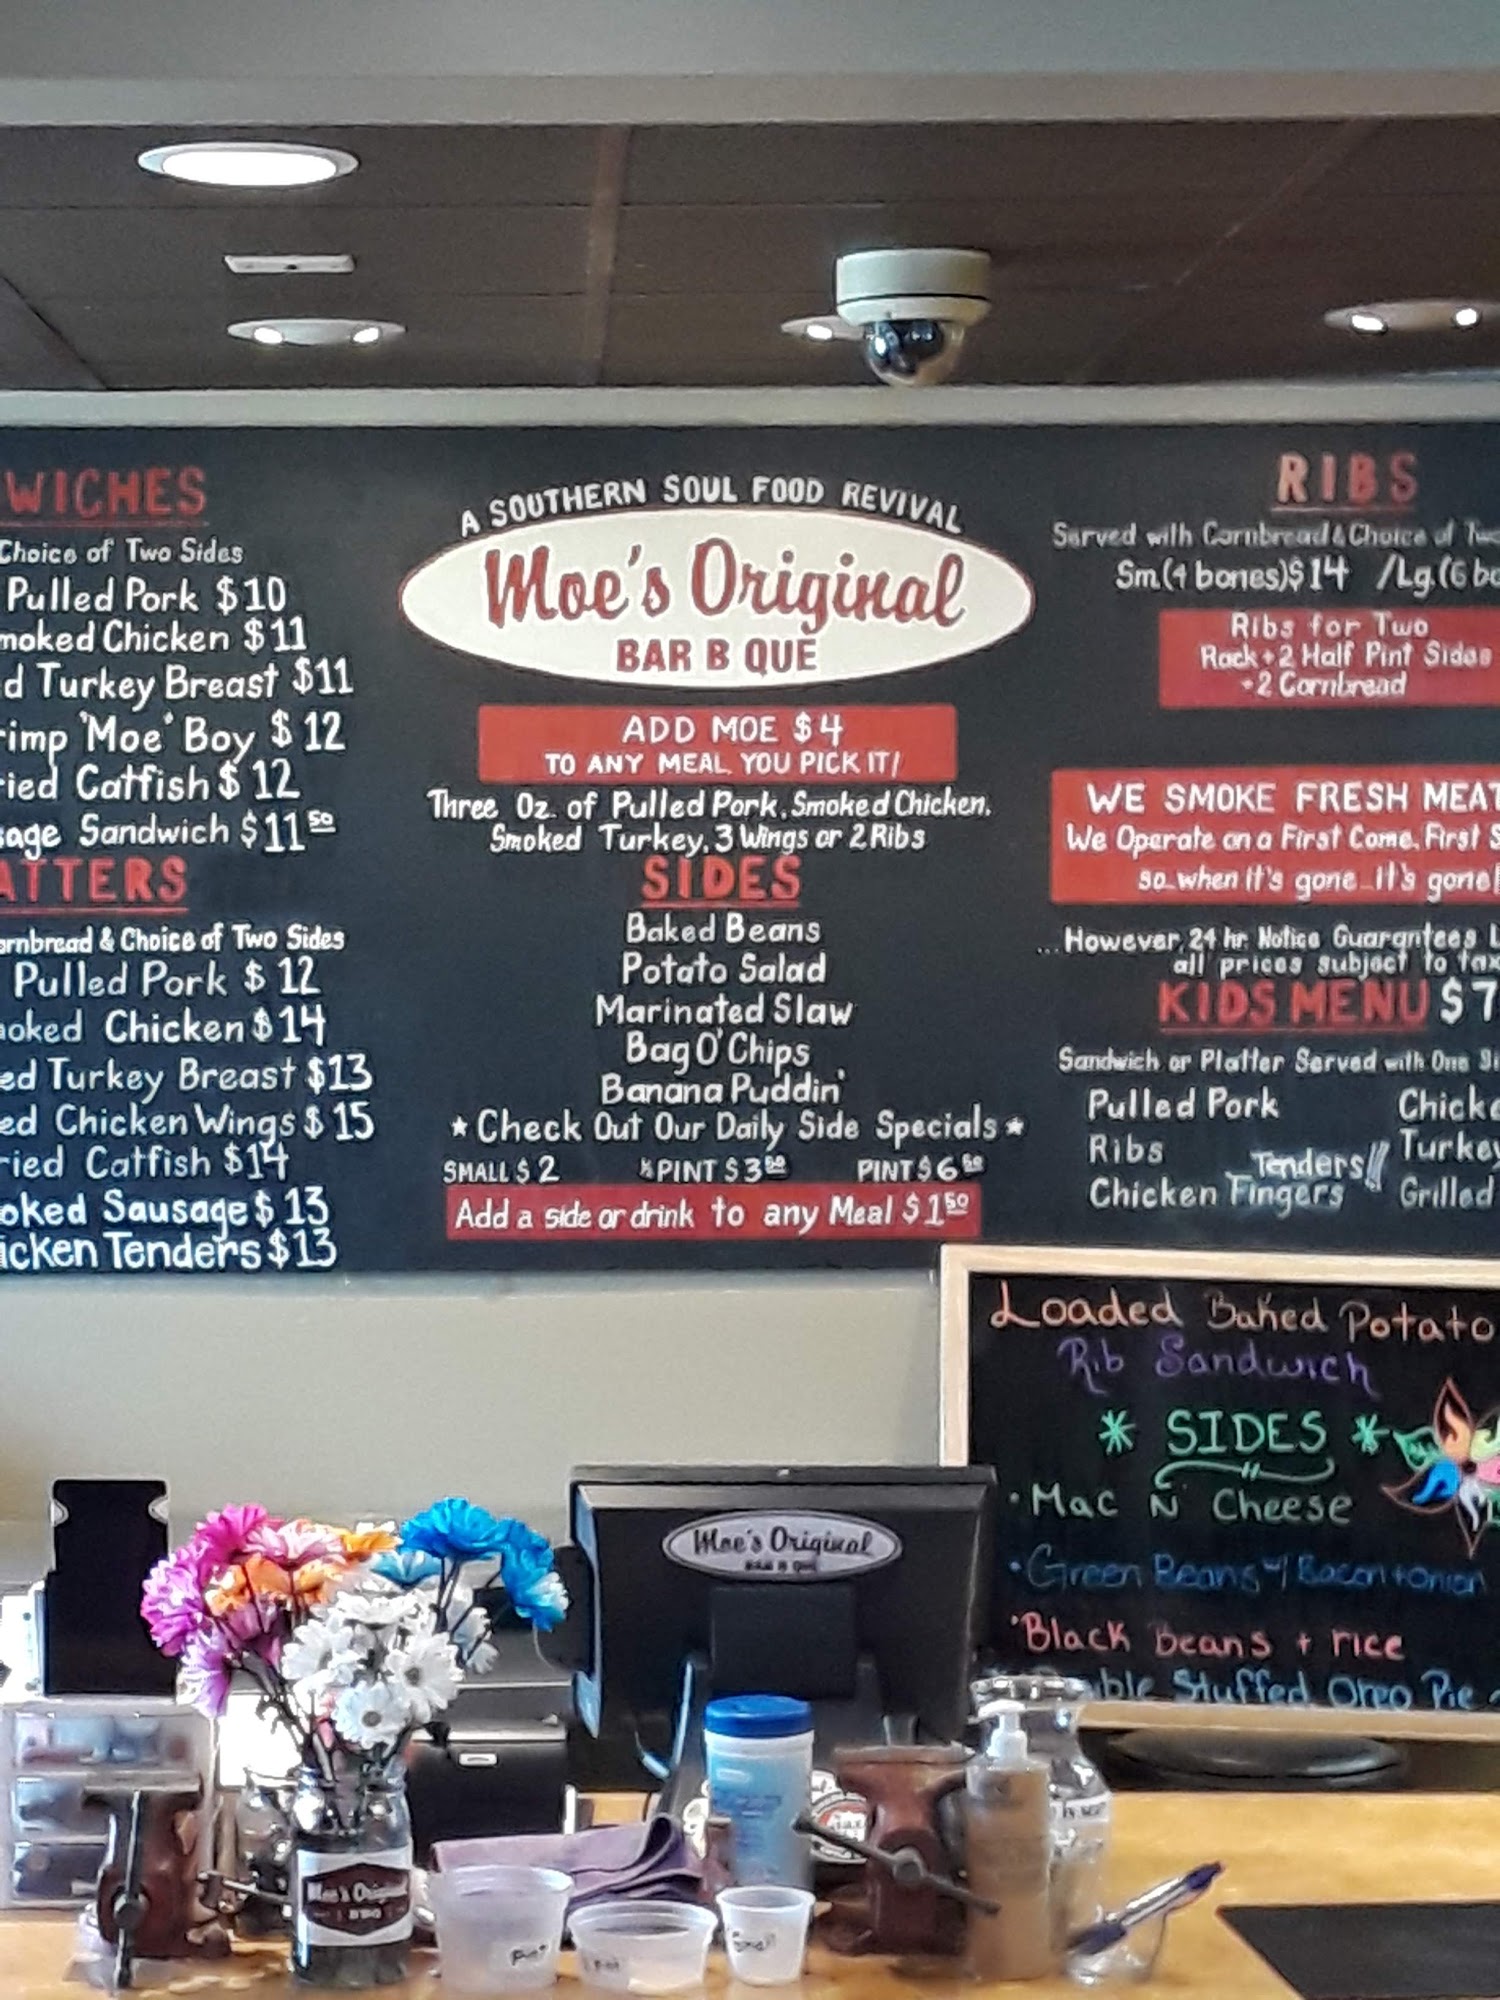 WICHES
Choice of Two Sides
Pulled Pork $10
moked Chicken $11
d Turkey Breast $11
rimp 'Moe' Boy $12
ried Catfish $12
sage Sandwich $11 50
ATTERS
ornbread & Choice of Two Sides
Pulled Pork $12
oked Chicken $14
ed Turkey Breast $13
ed Chicken Wings $15
ried Catfish $14
oked Sausage $13
icken Tenders $13
A SOUTHERN SOUL FOOD REVIVAL
Moe's Original
BAR B QUE
ADD MOE $4
TO ANY MEAL YOU PICK IT!
Three Oz. of Pulled Pork, Smoked Chicken,
Smoked Turkey, 3 Wings or 2 Ribs
SIDES
Baked Beans
Potato Salad
Marinated Slaw
Bag O' Chips
Banana Puddin'
* Check Out Our Daily Side Specials *
SMALL $2 ½ PINT $3 50 PINT $6 50
Add a side or drink to any Meal $1 50
RIBS
Served with Cornbread & Choice of Two
Sm.(4 bones)$14 /Lg.(6 bo
Ribs for Two
Rack + 2 Half Pint Sides
+ 2 Cornbread
WE SMOKE FRESH MEAT
We Operate on a First Come, First S
so...when it's gone...it's gone!
...However, 24 hr. Notice Guarantees
all prices subject to tax
KIDS MENU $7
Sandwich or Platter Served with One Si
Pulled Pork Chicke
Ribs Turkey
Chicken Fingers Tenders!! Grilled
Loaded Baked Potato
Rib Sandwich
* SIDES *
• Mac N Cheese
• Green Beans w/ Bacon + onion
• Black Beans + rice
uble Stuffed Oreo Pie
Moe's Original
BAR B QUE
Moe's Original
BBQ
Pint
Small